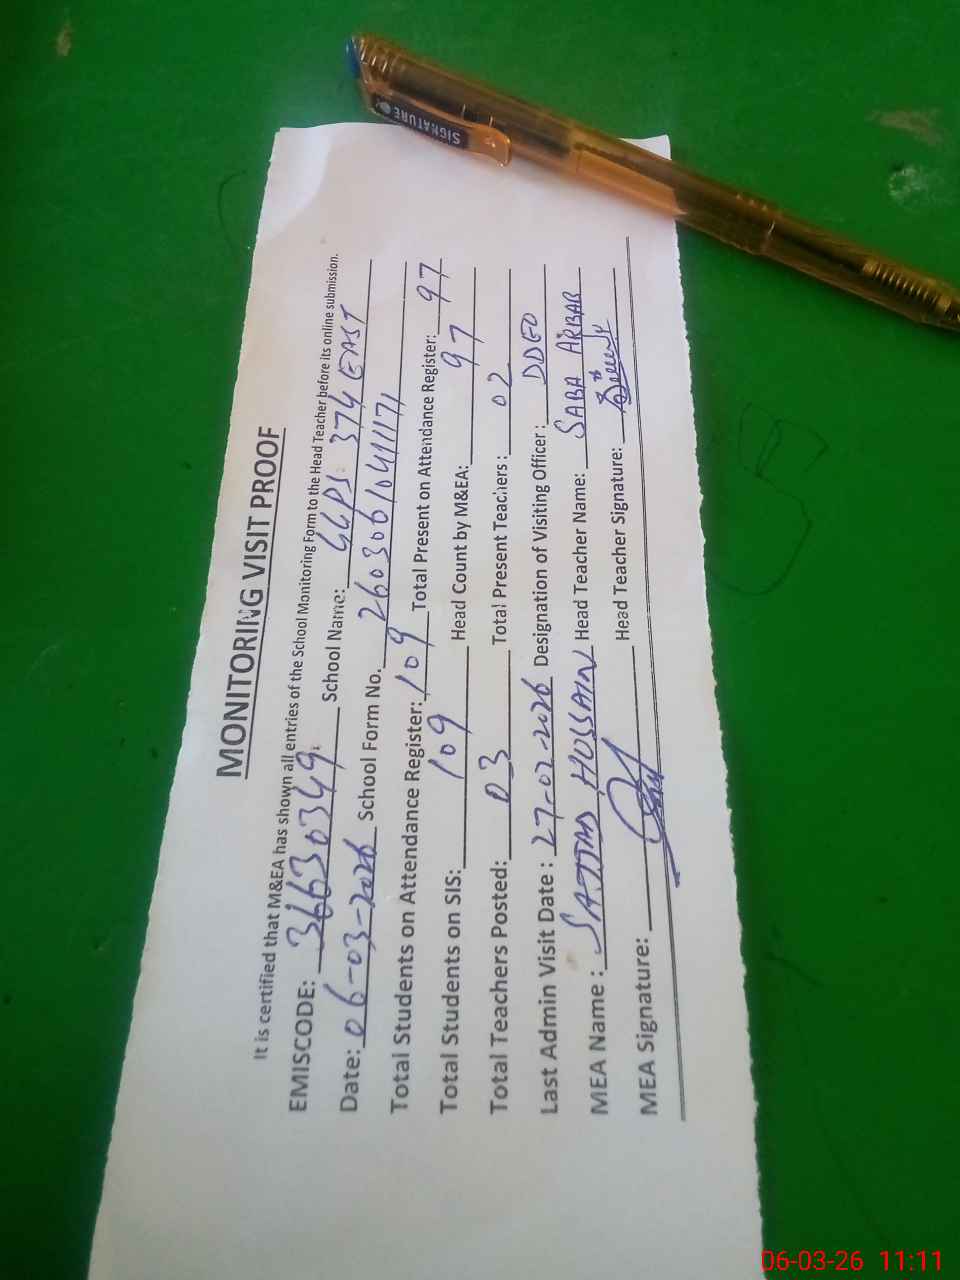 MONITORING VISIT PROOF
It is certified that M&EA has shown all entries of the School Monitoring Form to the Head Teacher before its online submission.
EMISCODE: 36630349 School Name: GGPS 374 EAST
Date: 06-03-2026 School Form No. 26030610411171
Total Students on Attendance Register: 109 Total Present on Attendance Register: 97
Total Students on SIS: 109 Head Count by M&EA: 97
Total Teachers Posted: 03 Total Present Teachers: 02
Last Admin Visit Date : 27-02-2026 Designation of Visiting Officer: DDEO
MEA Name : SAJJAD HUSSAIN Head Teacher Name: SABA ARBAB
MEA Signature: Head Teacher Signature:
SIGNATURE
06-03-26 11:11